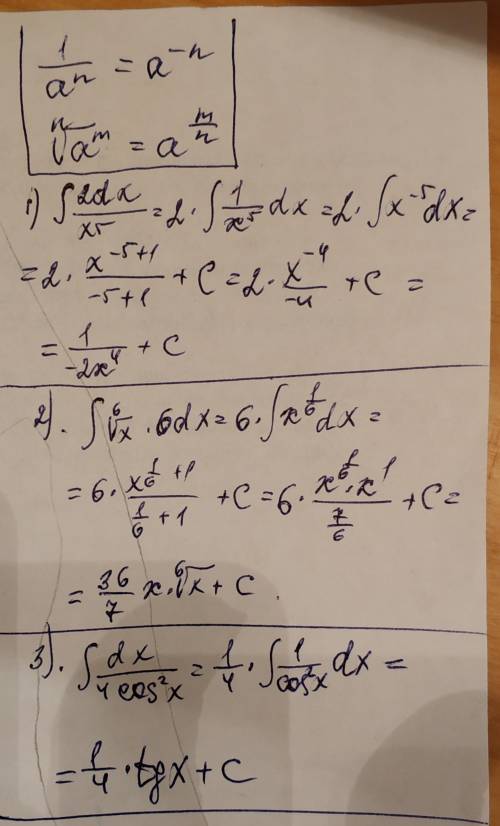 1/aⁿ = a⁻ⁿ
ⁿ√aᵐ = a^(m/n)
1) ∫ 2dx/x⁵ = 2 · ∫ 1/x⁵ dx = 2 · ∫ x⁻⁵ dx =
= 2 · x⁻⁵⁺¹/(-5+1) + C = 2 · x⁻⁴/-4 + C =
= 1/(-2x⁴) + C
2). ∫ ⁶√x · 6dx = 6 · ∫ x^(1/6) dx =
= 6 · x^(1/6 + 1)/(1/6 + 1) + C = 6 · (x^(1/6) · x¹)/(7/6) + C =
= 36/7 x · ⁶√x + C.
3). ∫ dx/(4 cos²x) = 1/4 · ∫ 1/cos²x dx =
= 1/4 · tgx + C